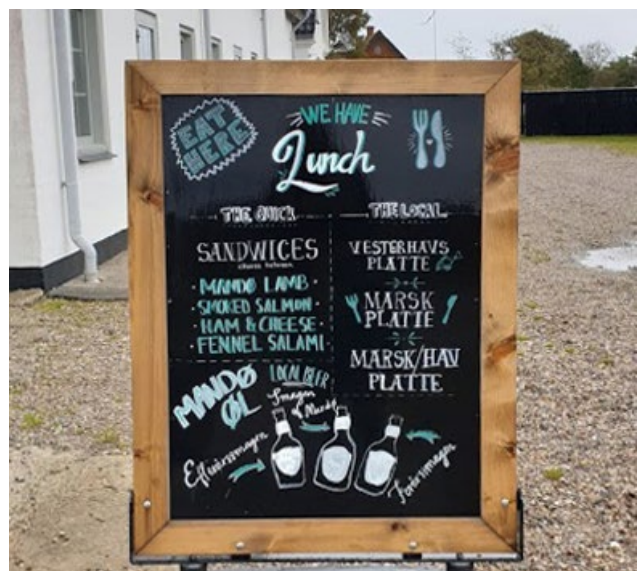 EAT
HERE
WE HAVE
Lunch
THE QUICK
SANDWICES
MANDØ LAMB
SMOKED SALMON
HAM & CHEESE
FENNEL SALAMI
THE LOCAL
VESTERHAVS
PLATTE
MARSK
PLATTE
MARSK/HAV
PLATTE
MANDØ
ØL
LOCAL BEER
Smagen
af Mandø
Efterårsmagen